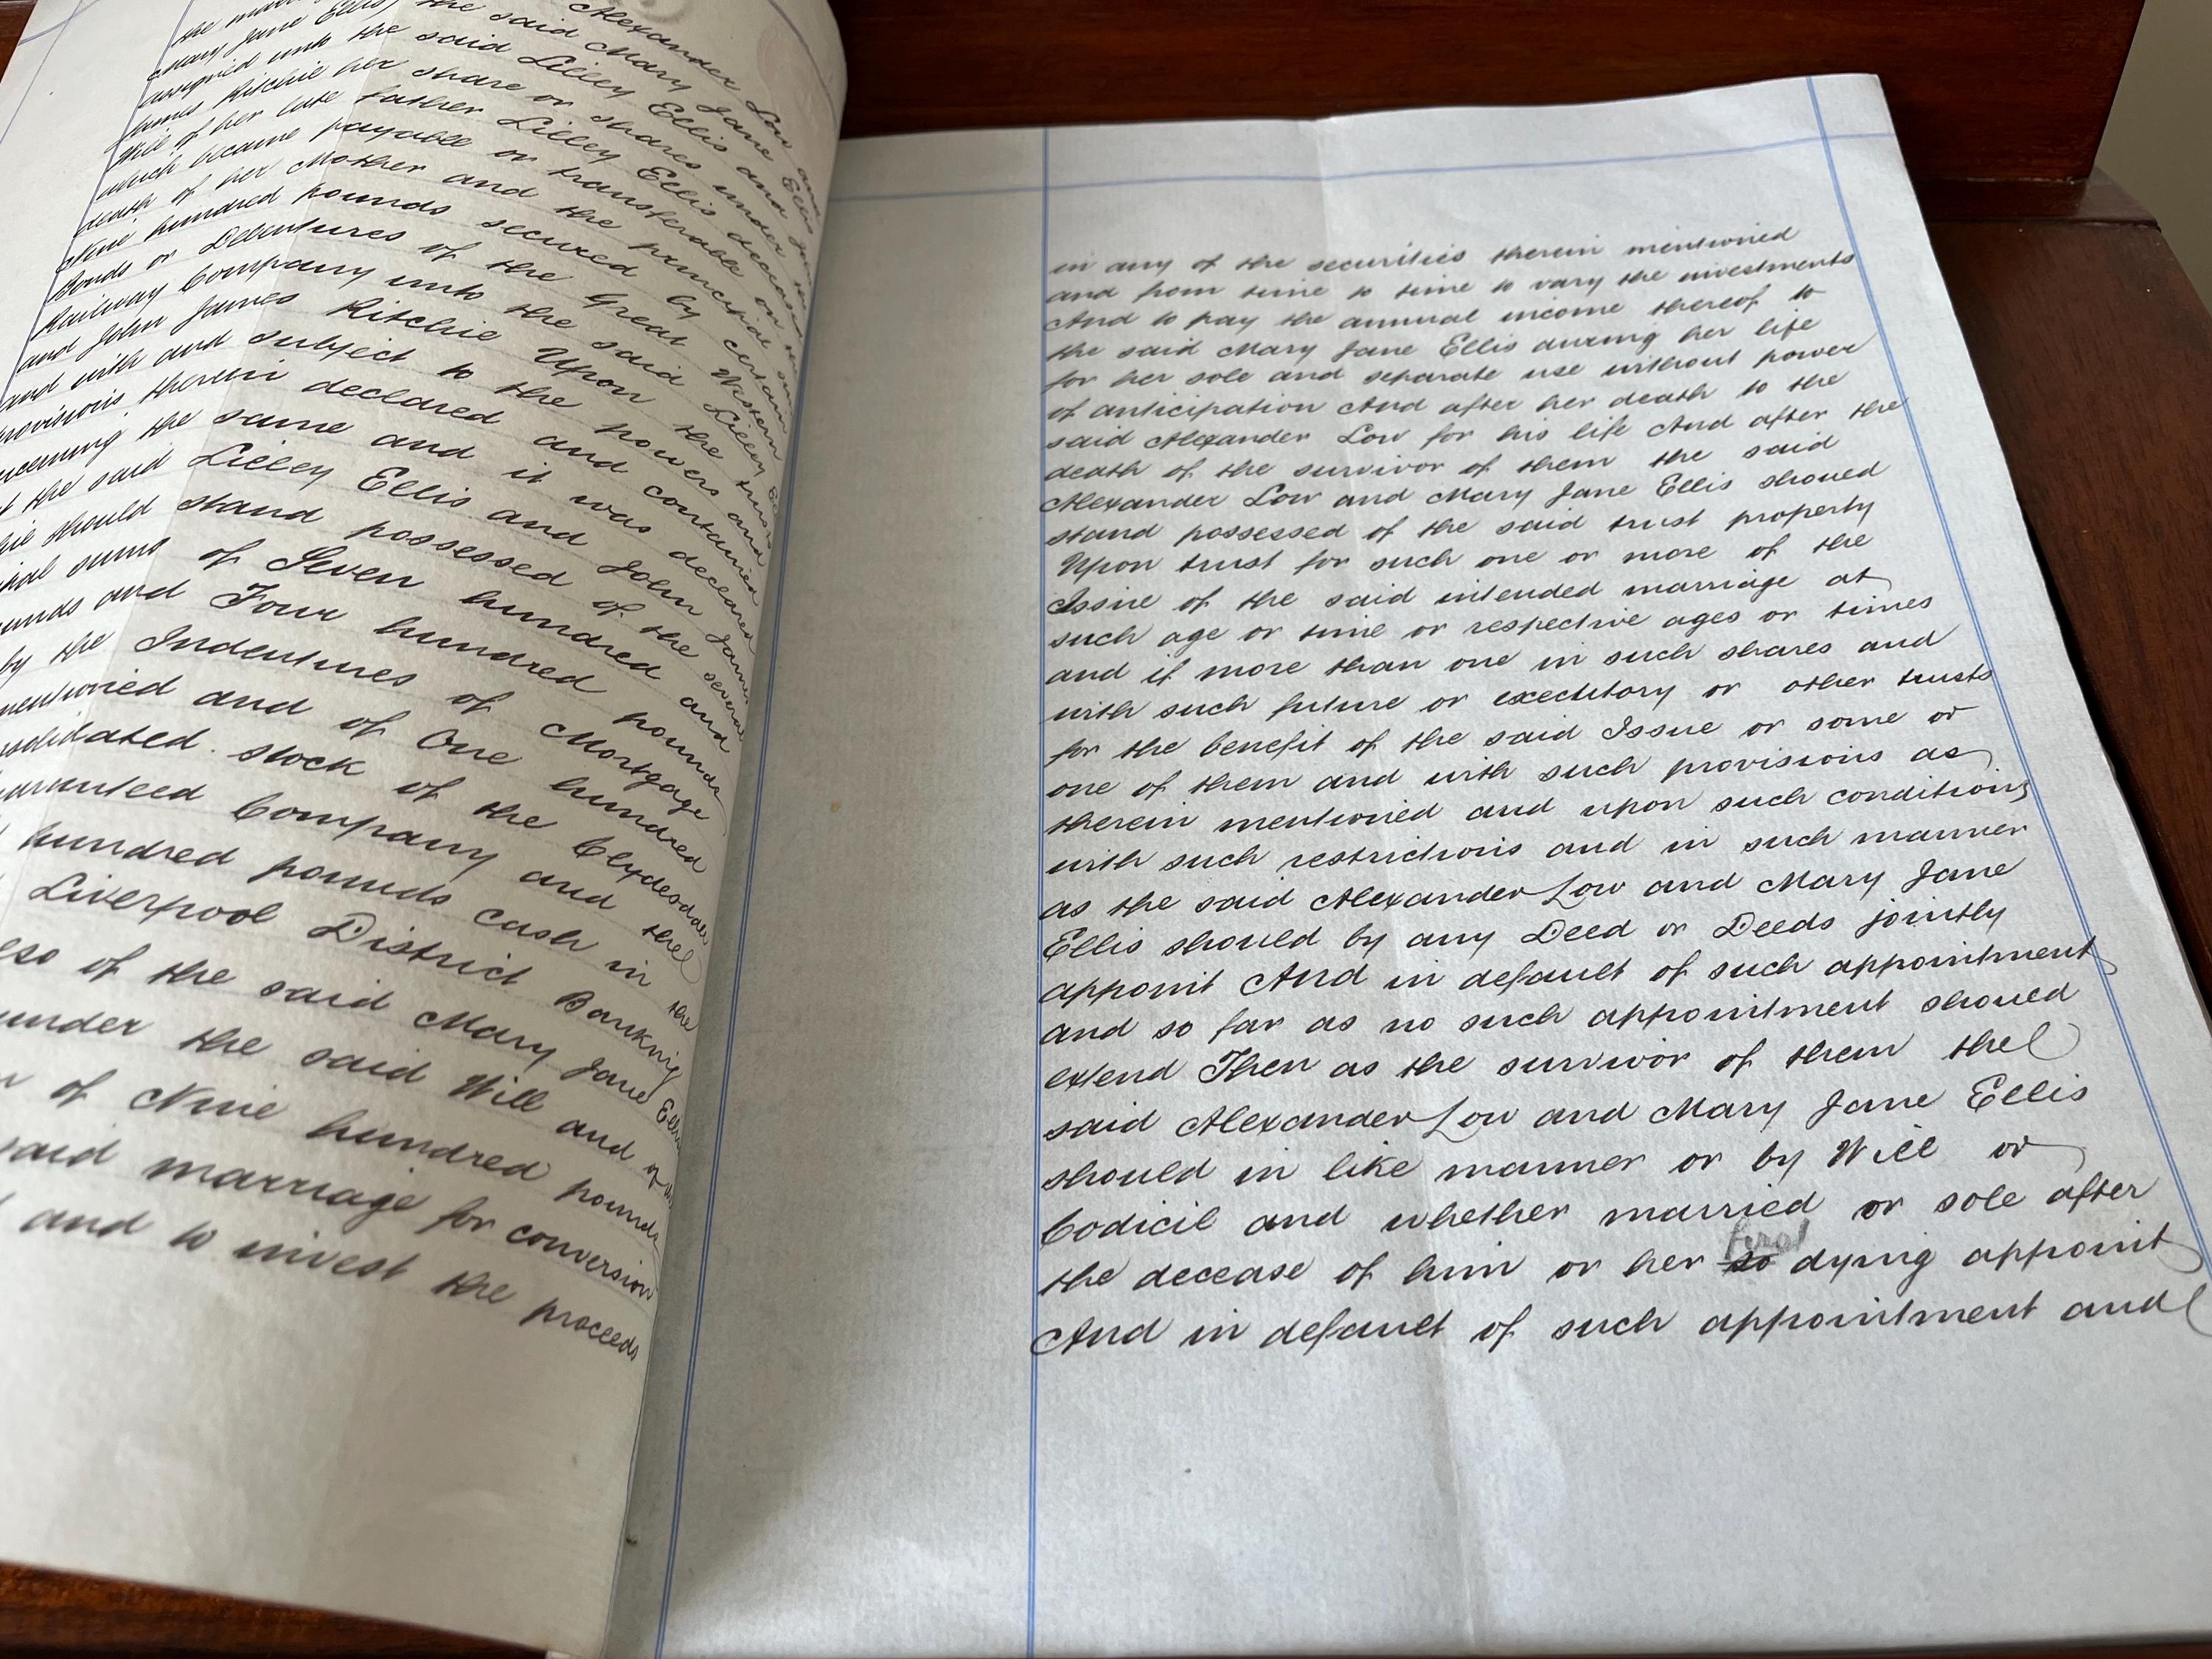 Alexander Low and
the said Mary Jane Ellis
Mary Jane Ellis, the said Lilley Ellis and John
assigned unto the said
James Ritchie her share or shares under the
Will of her late father Lilley Ellis deceased
which became payable or transferable on the
death of her Mother and the principal sum
Nine hundred pounds secured by certain
Bonds or Debentures of the Great Western
Railway Company unto the said Lilley
and John James Ritchie Upon the trusts
and with and subject to the powers and
provisions therein declared and contained
concerning the same and it was declared
the said Lilley Ellis and John James
should stand possessed of the several
sums of Seven hundred and
and Four hundred pounds
by the Indentures of Mortgage
and of One hundred
stock of the Clydesdale
Company and the
hundred pounds cash in the
Liverpool District Banking
of the said Mary Jane Ellis
under the said Will and of
of Nine hundred pounds
said marriage for conversion
and to invest the proceeds
in any of the securities therein mentioned
and from time to time to vary the investments
And to pay the annual income thereof to
the said Mary Jane Ellis during her life
for her sole and separate use without power
of anticipation And after her death to the
said Alexander Low for his life And after the
death of the survivor of them the said
Alexander Low and Mary Jane Ellis should
stand possessed of the said trust property
Upon trust for such one or more of the
Issue of the said intended marriage at
such age or time or respective ages or times
and if more than one in such shares and
with such future or executory or other trusts
for the benefit of the said Issue or some or
one of them and with such provisions as
therein mentioned and upon such conditions
with such restrictions and in such manner
as the said Alexander Low and Mary Jane
Ellis should by any Deed or Deeds jointly
appoint And in default of such appointment
and so far as no such appointment should
extend Then as the survivor of them the
said Alexander Low and Mary Jane Ellis
should in like manner or by Will or
Codicil and whether married or sole after
first
the decease of him or her so dying appoint
And in default of such appointment and